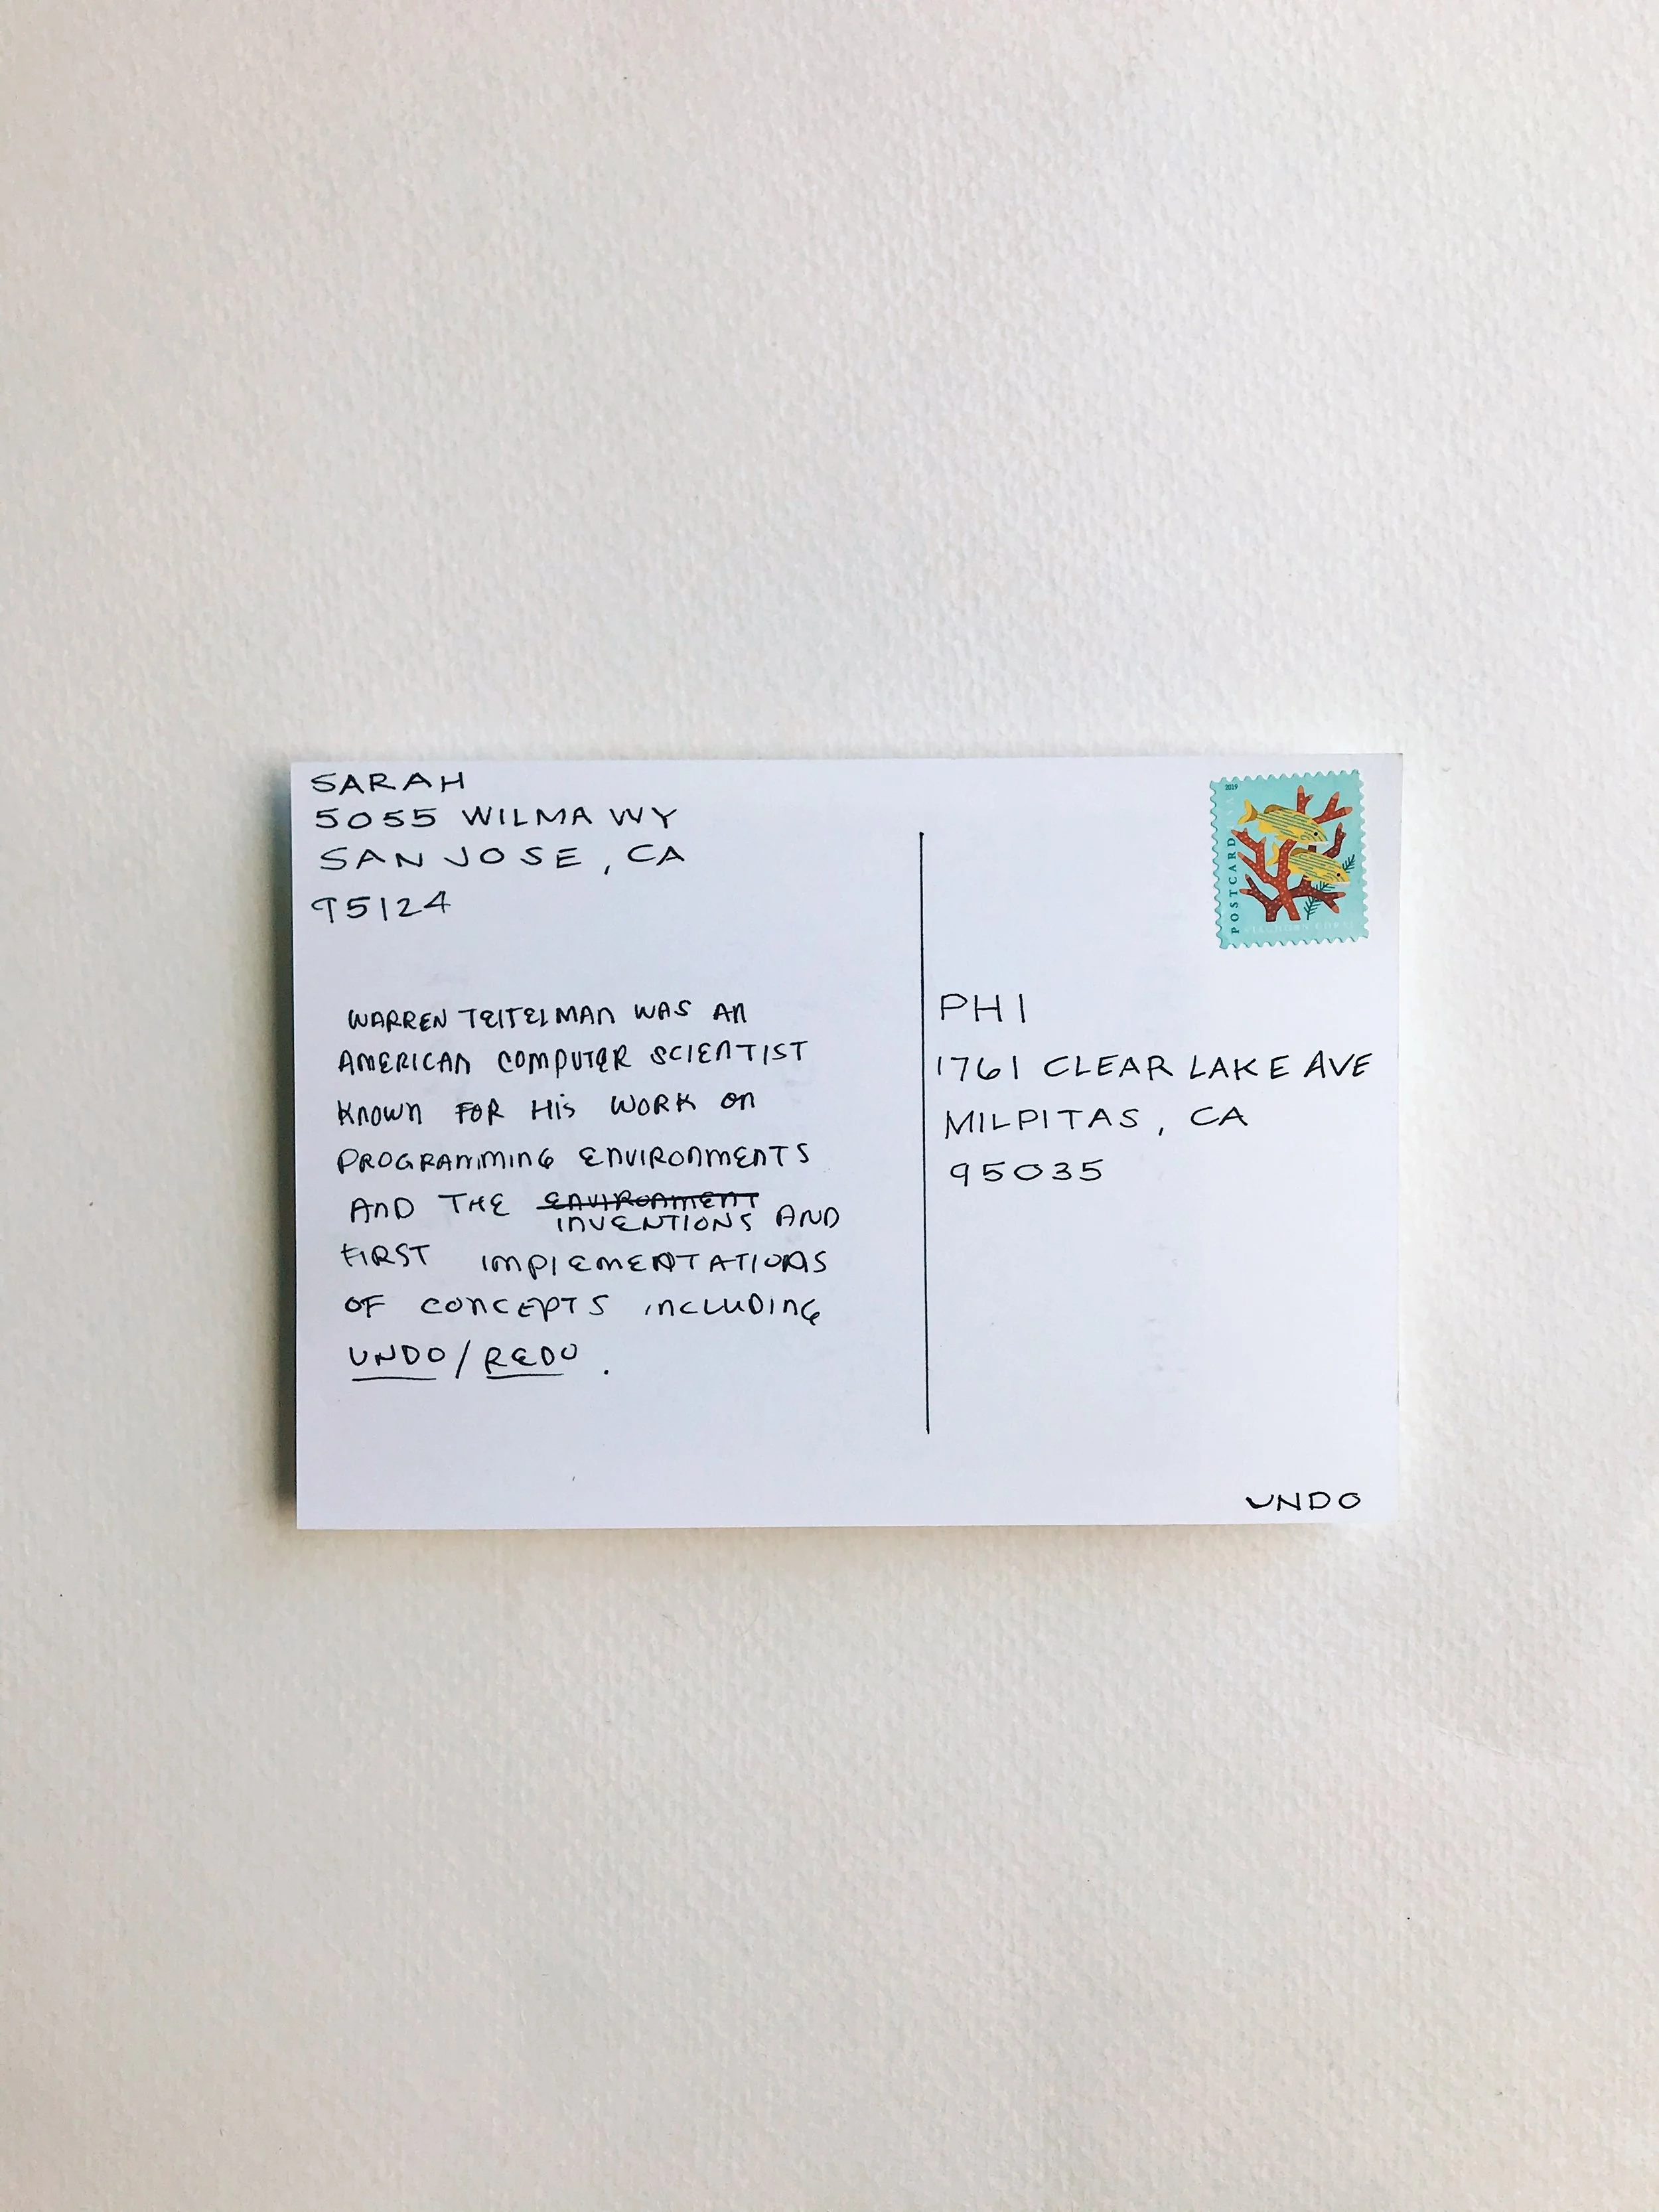 SARAH
5055 WILMA WY
SAN JOSE, CA
95124
WARREN TEITELMAN WAS AN
AMERICAN COMPUTER SCIENTIST
KNOWN FOR HIS WORK ON
PROGRAMMING ENVIRONMENTS
AND THE ENVIRONMENT
INVENTIONS AND
FIRST IMPLEMENTATIONS
OF CONCEPTS INCLUDING
UNDO/REDO.
2019
POSTCARD
STAGHORN CORAL
PHI
1761 CLEAR LAKE AVE
MILPITAS, CA
95035
UNDO